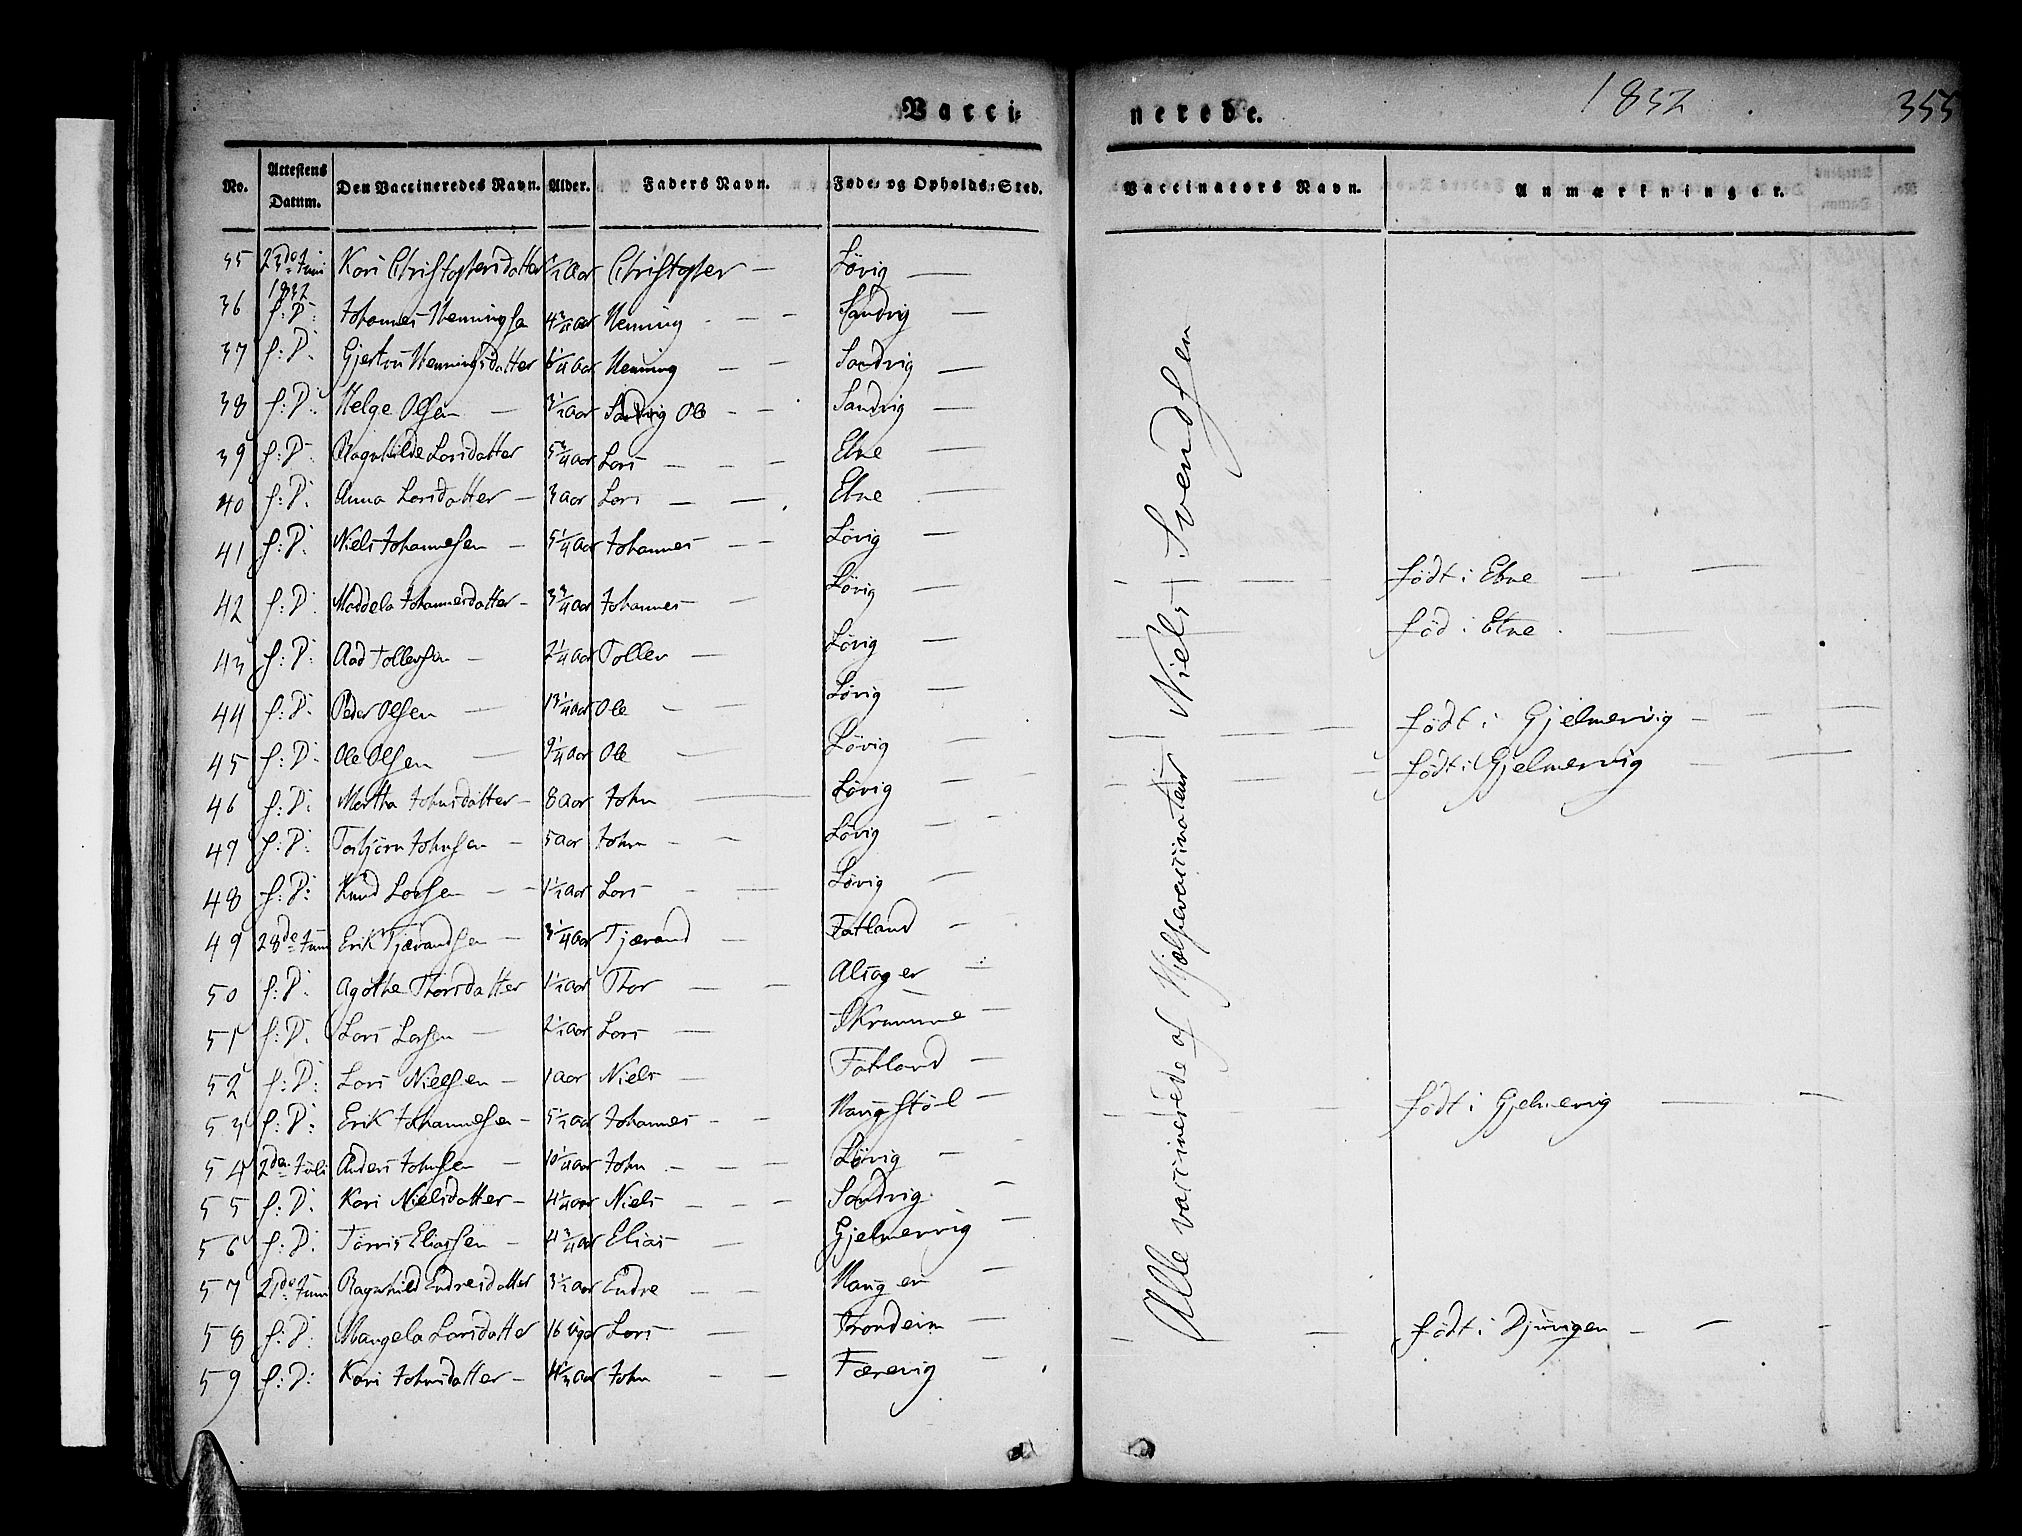 Vacci-
nerede.
1832
355
No. Attestens Datum. Den Vaccineredes Navn. Alder. Faders Navn. Føde- og Opholds-Sted. Vaccinators Navn. Anmærkninger.
35 23de Juni 1832 Kari Christophersdatter Aar Christopher — Løvig —
36 s: D: Johannes Henningsen 4 3/4 Aar Henning — — Sandvig —
37 s: D: Henningsdatter Aar Henning — — Sandvig —
38 s: D: Helge Olsen — 3 1/2 Aar Ole — — Sandvig —
39 s: D: Ragnhilde Larsdatter 5 3/4 Aar Lars — — — Etne —
40 s: D: Anna Larsdatter — 3 Aar Lars — — Etne —
41 s: D: Niels Johannesen — 5 1/4 Aar Johannes — — Løvig — født i Etne — —
42 s: D: Maddela Johannesdatter — 3 3/4 Aar Johannes — — Løvig — fød i Etne —
43 s: D: Aad Tollefsen — 2 1/4 Aar Tollev — Løvig —
44 s: D: Peder Olsen — Aar Ole — — Løvig — født i Gjelmervig — — —
45 s: D: Ole Olsen — 9 1/4 Aar Ole — Løvig — født i Gjelmervig — —
46 s: D: Martha Johnsdatter — 8 Aar John — Løvig —
49 s: D: Torbjørn Johnsen — 5 Aar John — — Løvig — —
48 s: D: Knud Larsen — — 1 1/2 Aar Lars — — Løvig —
49 28de Juni Erik Tjærandsen — Aar Tjærand — Fatland —
50 s: D: Agathe Thorsdatter 1 1/2 Aar Thor — — Alsager —
51 s: D: Lars Larsen — 2 1/2 Aar Lars — Skrumme —
52 s: D: Lars Nielsen — 1 Aar Niels — Fatland —
53 s: D: Erik Johannesen — 5 1/2 Aar Johannes — — Haugstøl — født i Gjelmervig — —
54 2den Juli Anders Johnsen — 10 1/4 Aar John — — — Løvig —
55 s: D: Kari Nielsdatter — 4 1/4 Aar Niels — — — Sandvig —
56 s: D: Tørris Eliassen — 4 3/4 Aar Elias — Gjelmervig —
57 21de Juni Ragnhild Endresdatter 3 1/2 Aar Endre — — Haugen —
58 s: D: Mangela Larsdatter 16 Uger Lars — Trondeim — født i Djuvigen — —
59 s: D: Kari Johnsdatter — Aar John — — Færevig —
Alle vaccinerede af Hjælpevaccinateur Niels Svendsen